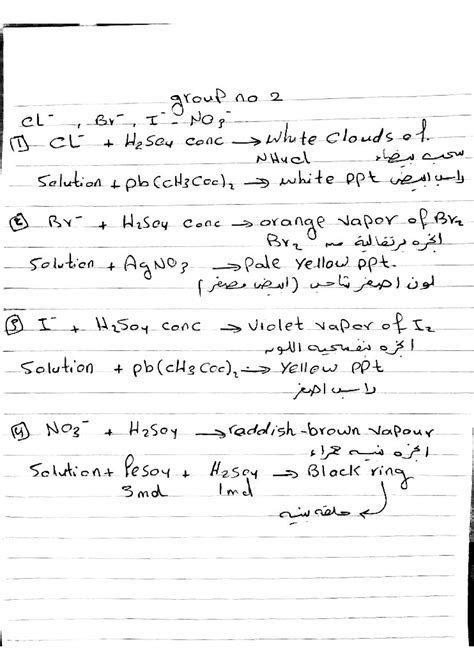 group no 2
Cl⁻ , Br⁻ , I⁻ - NO₃⁻
① CL⁻ + H₂SO4 conc → White Clouds of.
NH4Cl سحب بيضاء
Solution + pb(cH3Coo)₂ → white ppt راسب ابيض
② Br⁻ + H₂SO4 conc → orange vapor of Br₂
ابخرة برتقالية من Br₂
Solution + AgNO₃ → Pale Yellow ppt.
لون اصفر شاحب (ابيض مصفر)
③ I⁻ + H₂SO4 conc → Violet vapor of I₂
ابخرة بنفسجية اللون
Solution + pb(cH3Coo)₂ → Yellow PPt
راسب اصفر
④ NO3⁻ + H2SO4 → raddish-brown vapour
ابخرة بنيه حمراء
Solution + FeSO4 + H2SO4 → Black ring
3md 1md
حلقه بنيه